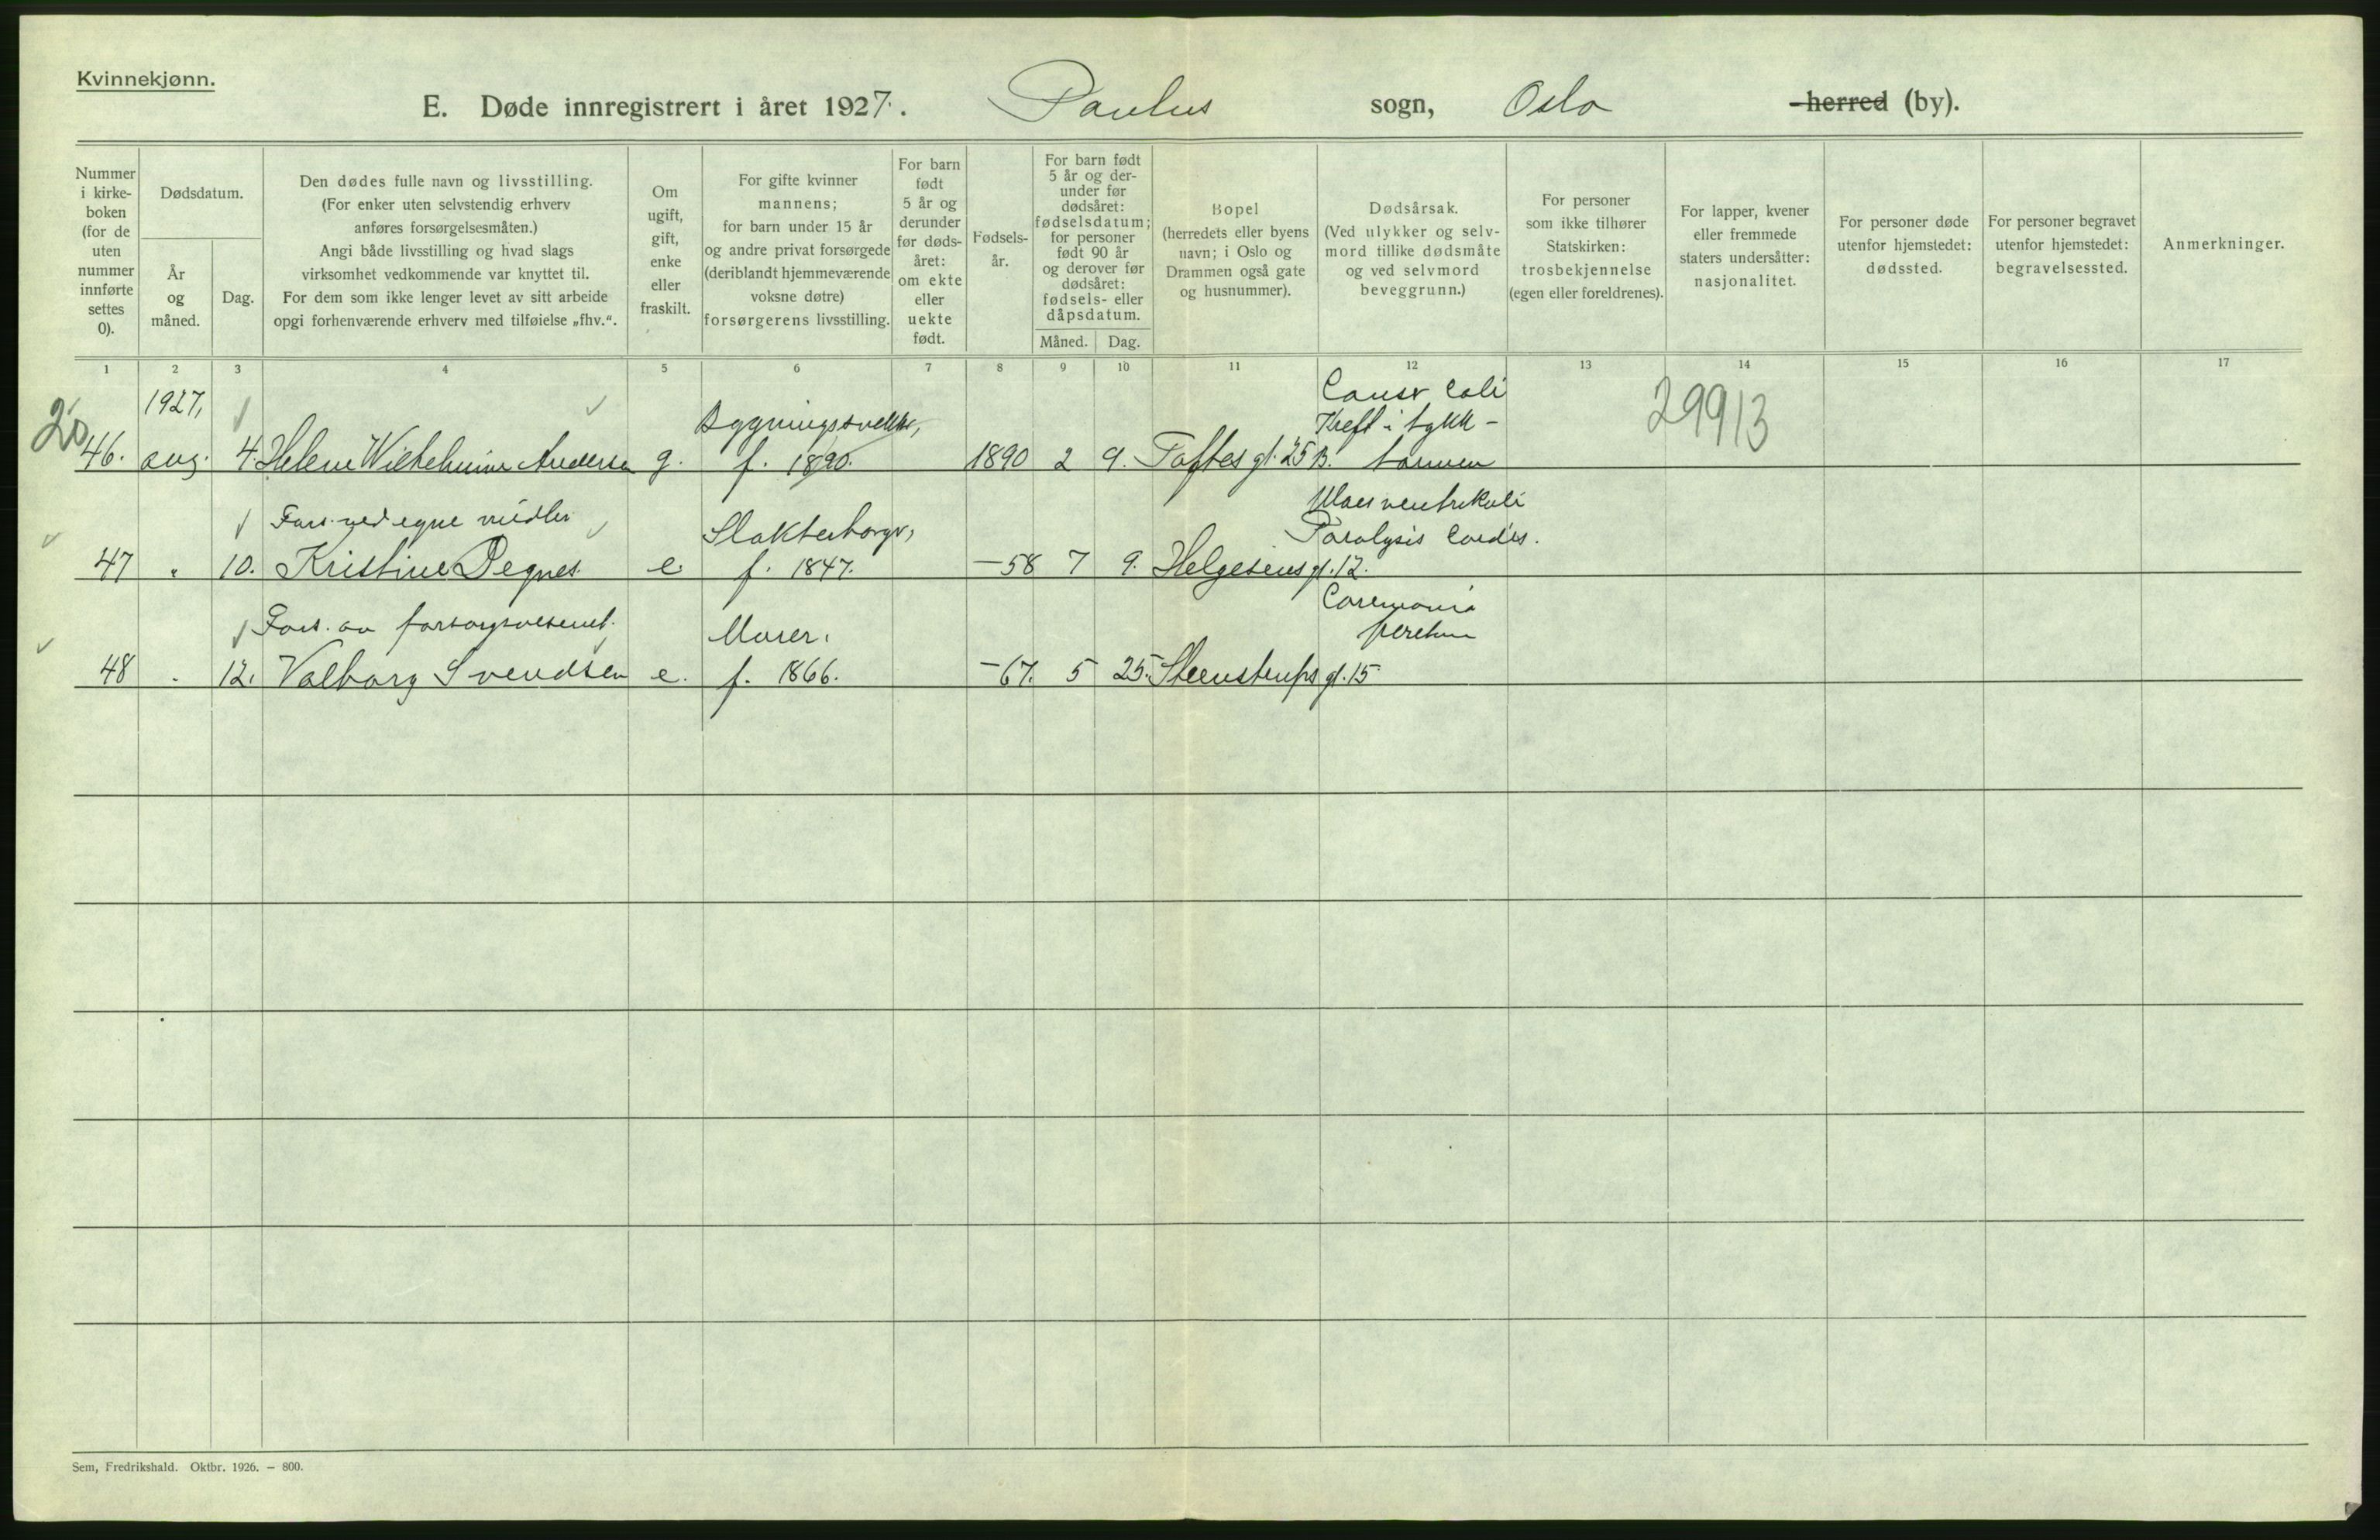 Kvinnekjønn.
E. Døde innregistrert i året 1927. Paulus sogn, Oslo herred (by).
Nummer i kirke-boken (for de uten nummer innførte settes 0).
Dødsdatum.
År og måned.
Dag.
Den dødes fulle navn og livsstilling.
(For enker uten selvstendig erhverv
anføres forsørgelsesmåten.)
Angi både livsstilling og hvad slags
virksomhet vedkommende var knyttet til.
For dem som ikke lenger levet av sitt arbeide
opgi forhenværende erhverv med tilføielse „fhv.“.
Om ugift, gift, enke eller fraskilt.
For gifte kvinner
mannens;
for barn under 15 år
og andre privat forsørgede
(deriblandt hjemmeværende
voksne døtre)
forsørgerens livsstilling.
For barn født 5 år og derunder før døds-året: om ekte eller uekte født.
Fødsels-år.
For barn født
5 år og der-
under før
dødsåret:
fødselsdatum;
for personer
født 90 år
og derover før
dødsåret:
fødsels- eller
dåpsdatum.
Måned. Dag.
Bopel
(herredets eller byens
navn; i Oslo og
Drammen også gate
og husnummer).
Dødsårsak.
(Ved ulykker og selv-
mord tillike dødsmåte
og ved selvmord
beveggrunn.)
For personer
som ikke tilhører
Statskirken:
trosbekjennelse
(egen eller foreldrenes).
For lapper, kvener
eller fremmede
staters undersåtter:
nasjonalitet.
For personer døde
utenfor hjemstedet:
dødssted.
For personer begravet
utenfor hjemstedet:
begravelsessted.
Anmerkninger.
1 2 3 4 5 6 7 8 9 10 11 12 13 14 15 16 17
1927,
Cancr Coli
Kreft i tykk-
29913
46. aug. 4. Helene Wilhelmine Andersen g. f. 1890. 1890 2 9. Toftes gt. 25 B. tarmen
Fors. ved egne midler
Slakterborger,
Ulcus ventrikuli
Paralysis Cordis.
47 " 10. Kristine Pegnes. e. f. 1847. -58 7 9. Helgesens gt. 12.
Fors. av forsorgsvesenet.
Murer.
48 " 12. Valborg Svendsen e. f. 1866. -67. 5 25. Steenstrups gt. 15
Sem, Fredrikshald. Oktbr. 1926. — 800.